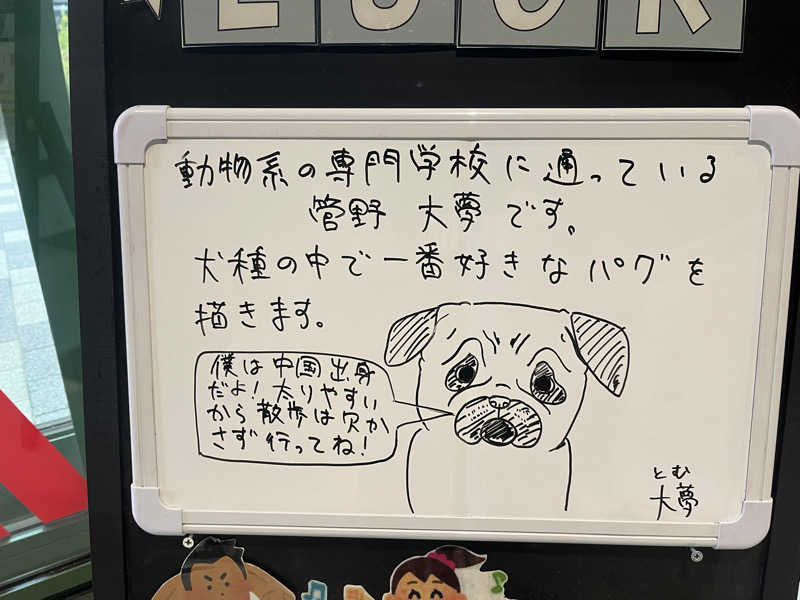 LOOK
動物系の専門学校に通っている
管野 大夢です。
犬種の中で一番好きなパグを
描きます。
僕は中国出身
だよ!太りやすい
から散歩は欠か
さず行ってね!
とむ
大夢